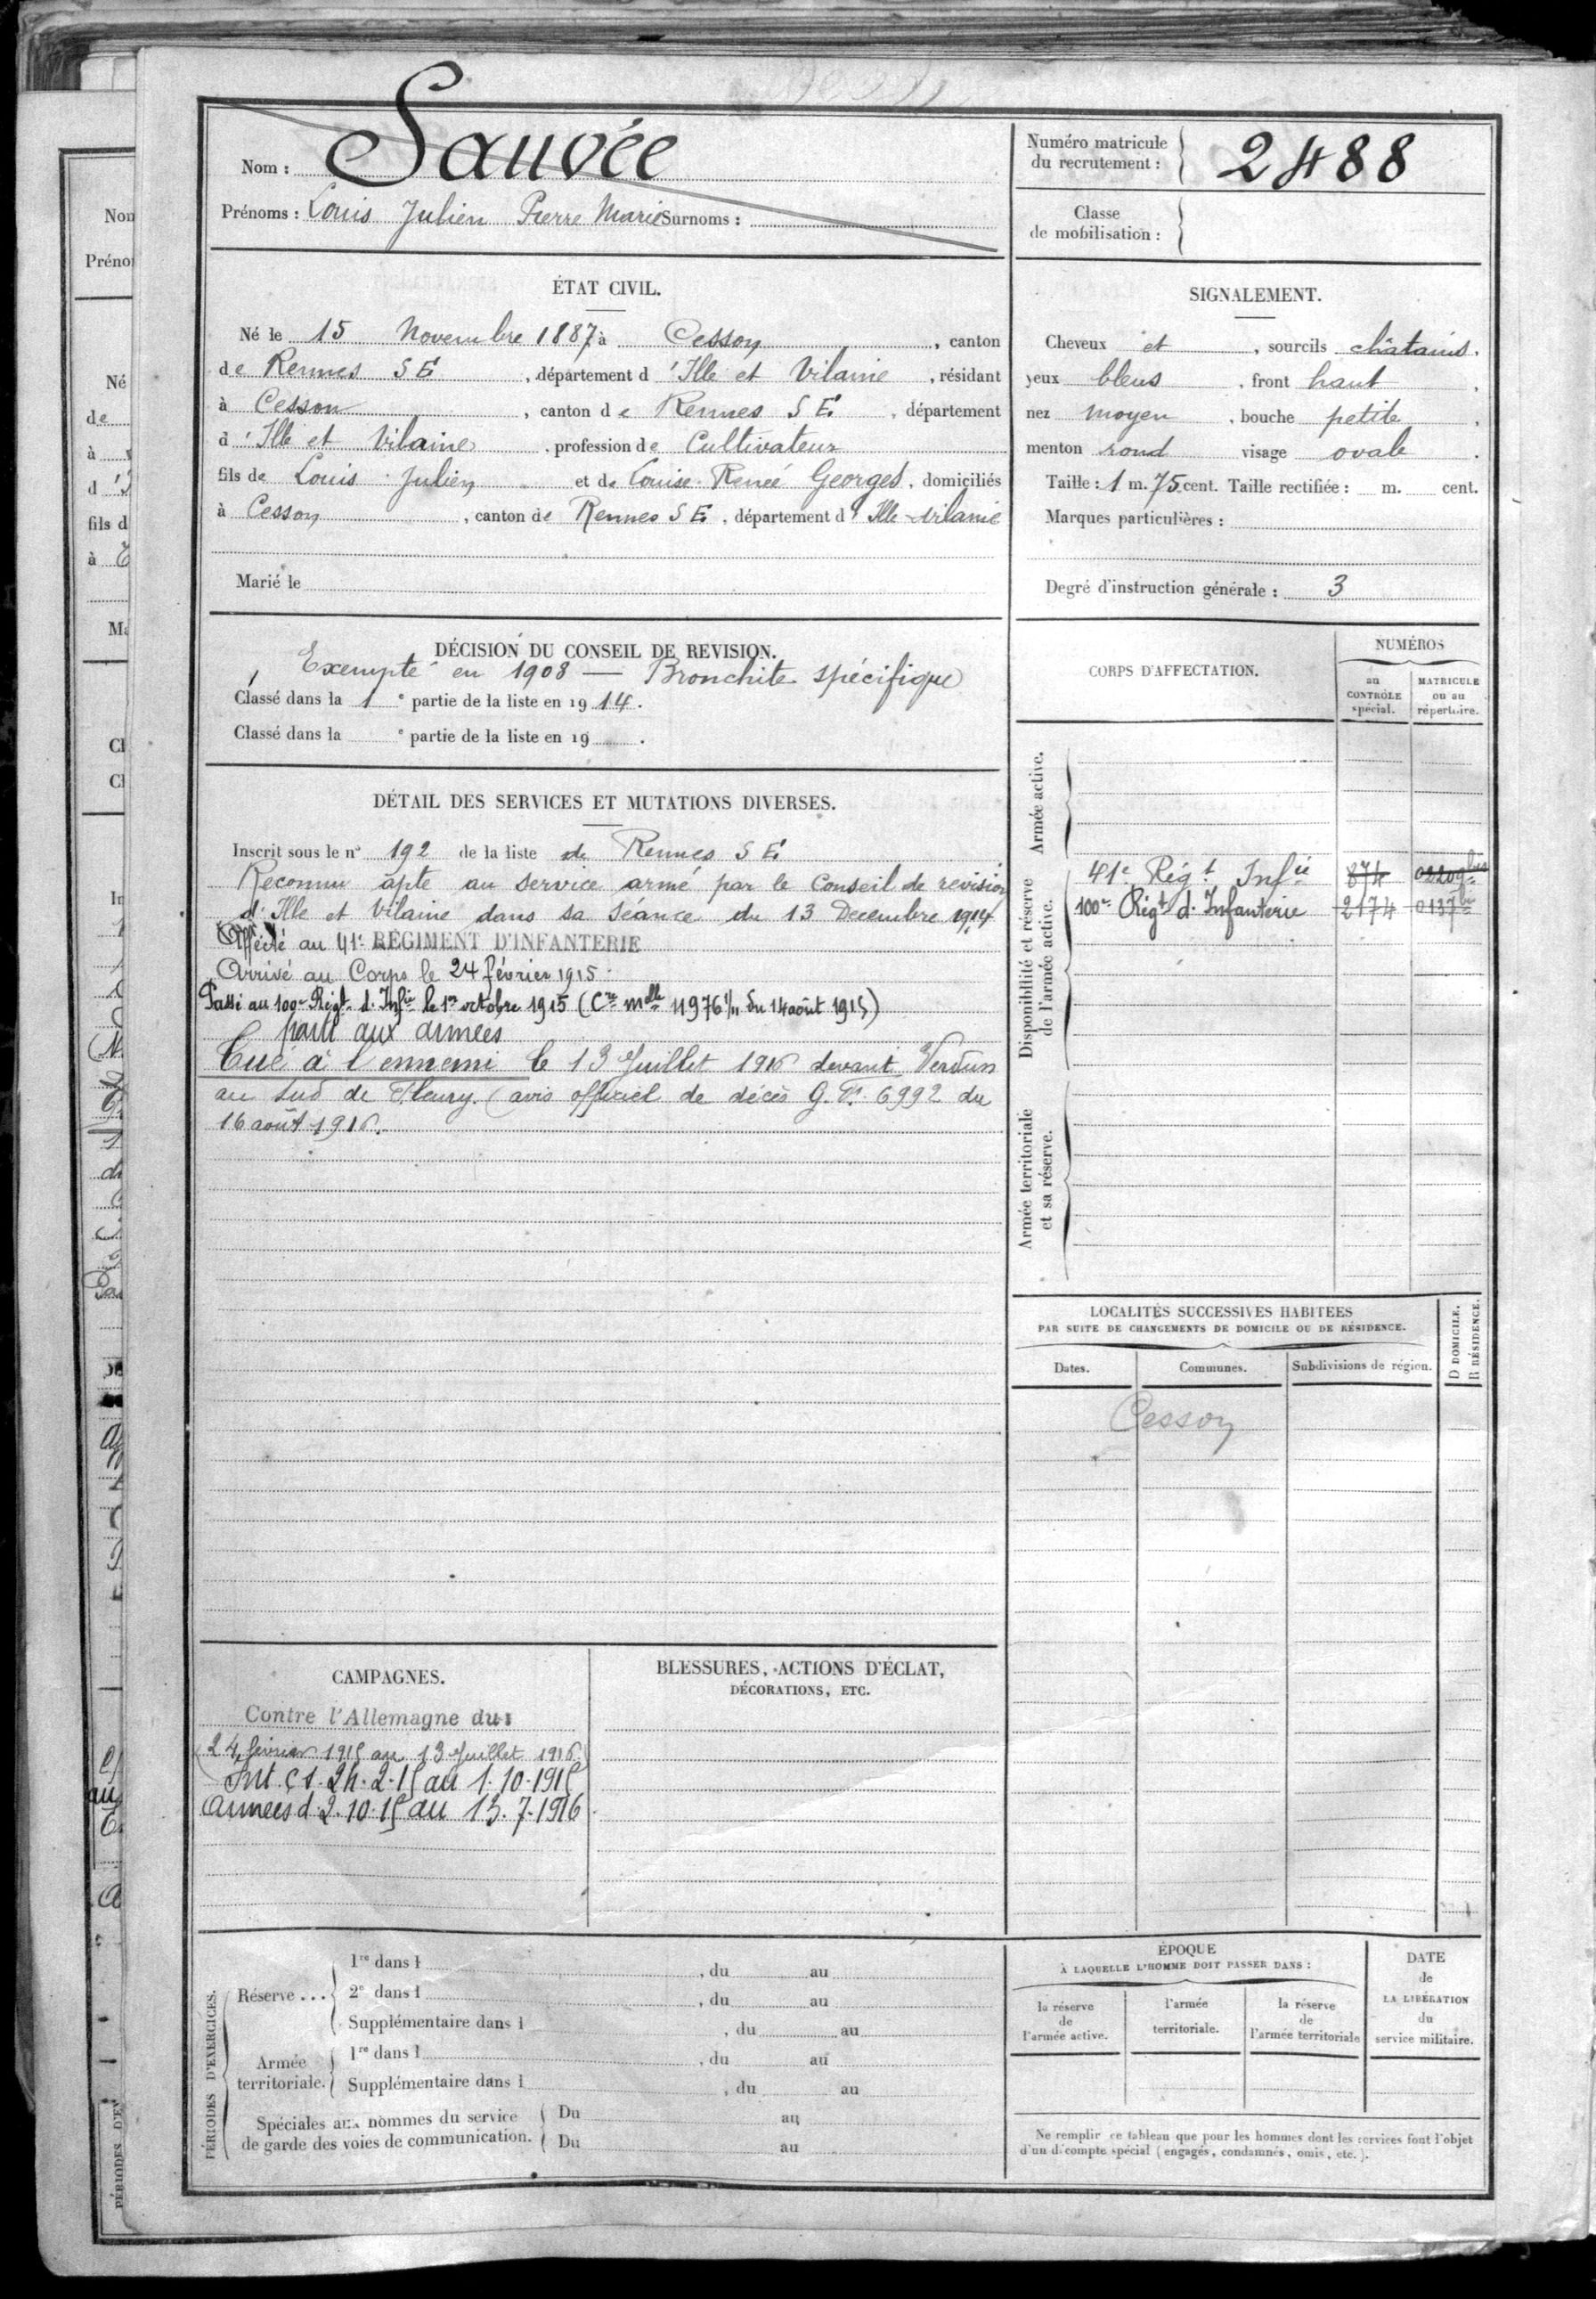 Nom : Sauvée
Prénoms : Louis Julien Pierre Marie Surnoms :
Numéro matricule du recrutement : 2488
Classe de mobilisation :
ÉTAT CIVIL.
Né le 15 Novembre 1887 à Cesson, canton
de Rennes S E, département d'Ille et Vilaine, résidant
à Cesson, canton de Rennes S E, département
d'Ille et Vilaine, profession de Cultivateur
fils de Louis Julien et de Louise Renée Georges, domiciliés
à Cesson, canton de Rennes S E, département d'Ille Vilaine
Marié le
SIGNALEMENT.
Cheveux et, sourcils châtains,
yeux bleus, front haut,
nez moyen, bouche petite,
menton rond visage ovale.
Taille : 1 m. 75 cent. Taille rectifiée : m. cent.
Marques particulières :
Degré d'instruction générale : 3
DÉCISION DU CONSEIL DE REVISION.
Exempté en 1908 — Bronchite spécifique
Classé dans la 1e partie de la liste en 1914.
Classé dans la e partie de la liste en 19 .
DÉTAIL DES SERVICES ET MUTATIONS DIVERSES.
Inscrit sous le n° 192 de la liste de Rennes S E
Reconnu apte au service armé par le Conseil de revision
d'Ille et Vilaine dans sa séance du 13 Décembre 1914
Affecté au 41e RÉGIMENT D'INFANTERIE
Arrivé au Corps le 24 février 1915.
Passé au 100e Régt d'Infie le 1er octobre 1915 (Cre Mlle 11976 1/11 du 14 août 1915)
parti aux armées
Tué à l'ennemi le 13 Juillet 1916 devant Verdun
au sud de Fleury. (avis officiel de décès G. 6992 du
16 août 1916.
CORPS D'AFFECTATION.
NUMÉROS
au CONTRÔLE spécial.
MATRICULE ou au répertoire.
Armée active.
Disponibilité et réserve de l'armée active.
41e Régt Infie 874
100e Régt d'Infanterie 2174
Armée territoriale et sa réserve.
LOCALITÉS SUCCESSIVES HABITÉES
PAR SUITE DE CHANGEMENTS DE DOMICILE OU DE RÉSIDENCE.
Dates. Communes. Subdivisions de région. D DOMICILE. R RÉSIDENCE.
Cesson
CAMPAGNES.
Contre l'Allemagne du
24 février 1915 au 13 Juillet 1916
Int. 24.2.15 au 1.10.1915
Armées d. 2.10.15 au 13.7.1916
BLESSURES, ACTIONS D'ÉCLAT,
DÉCORATIONS, ETC.
PÉRIODES D'EXERCICES.
Réserve ...
1re dans l , du au
2e dans l , du au
Supplémentaire dans l , du au
Armée territoriale.
1re dans l , du au
Supplémentaire dans l , du au
Spéciales aux hommes du service
de garde des voies de communication.
Du au
Du au
ÉPOQUE
À LAQUELLE L'HOMME DOIT PASSER DANS :
la réserve de l'armée active.
l'armée territoriale.
la réserve de l'armée territoriale
DATE de LA LIBÉRATION du service militaire.
Ne remplir ce tableau que pour les hommes dont les services font l'objet
d'un décompte spécial (engagés, condamnés, omis, etc.).